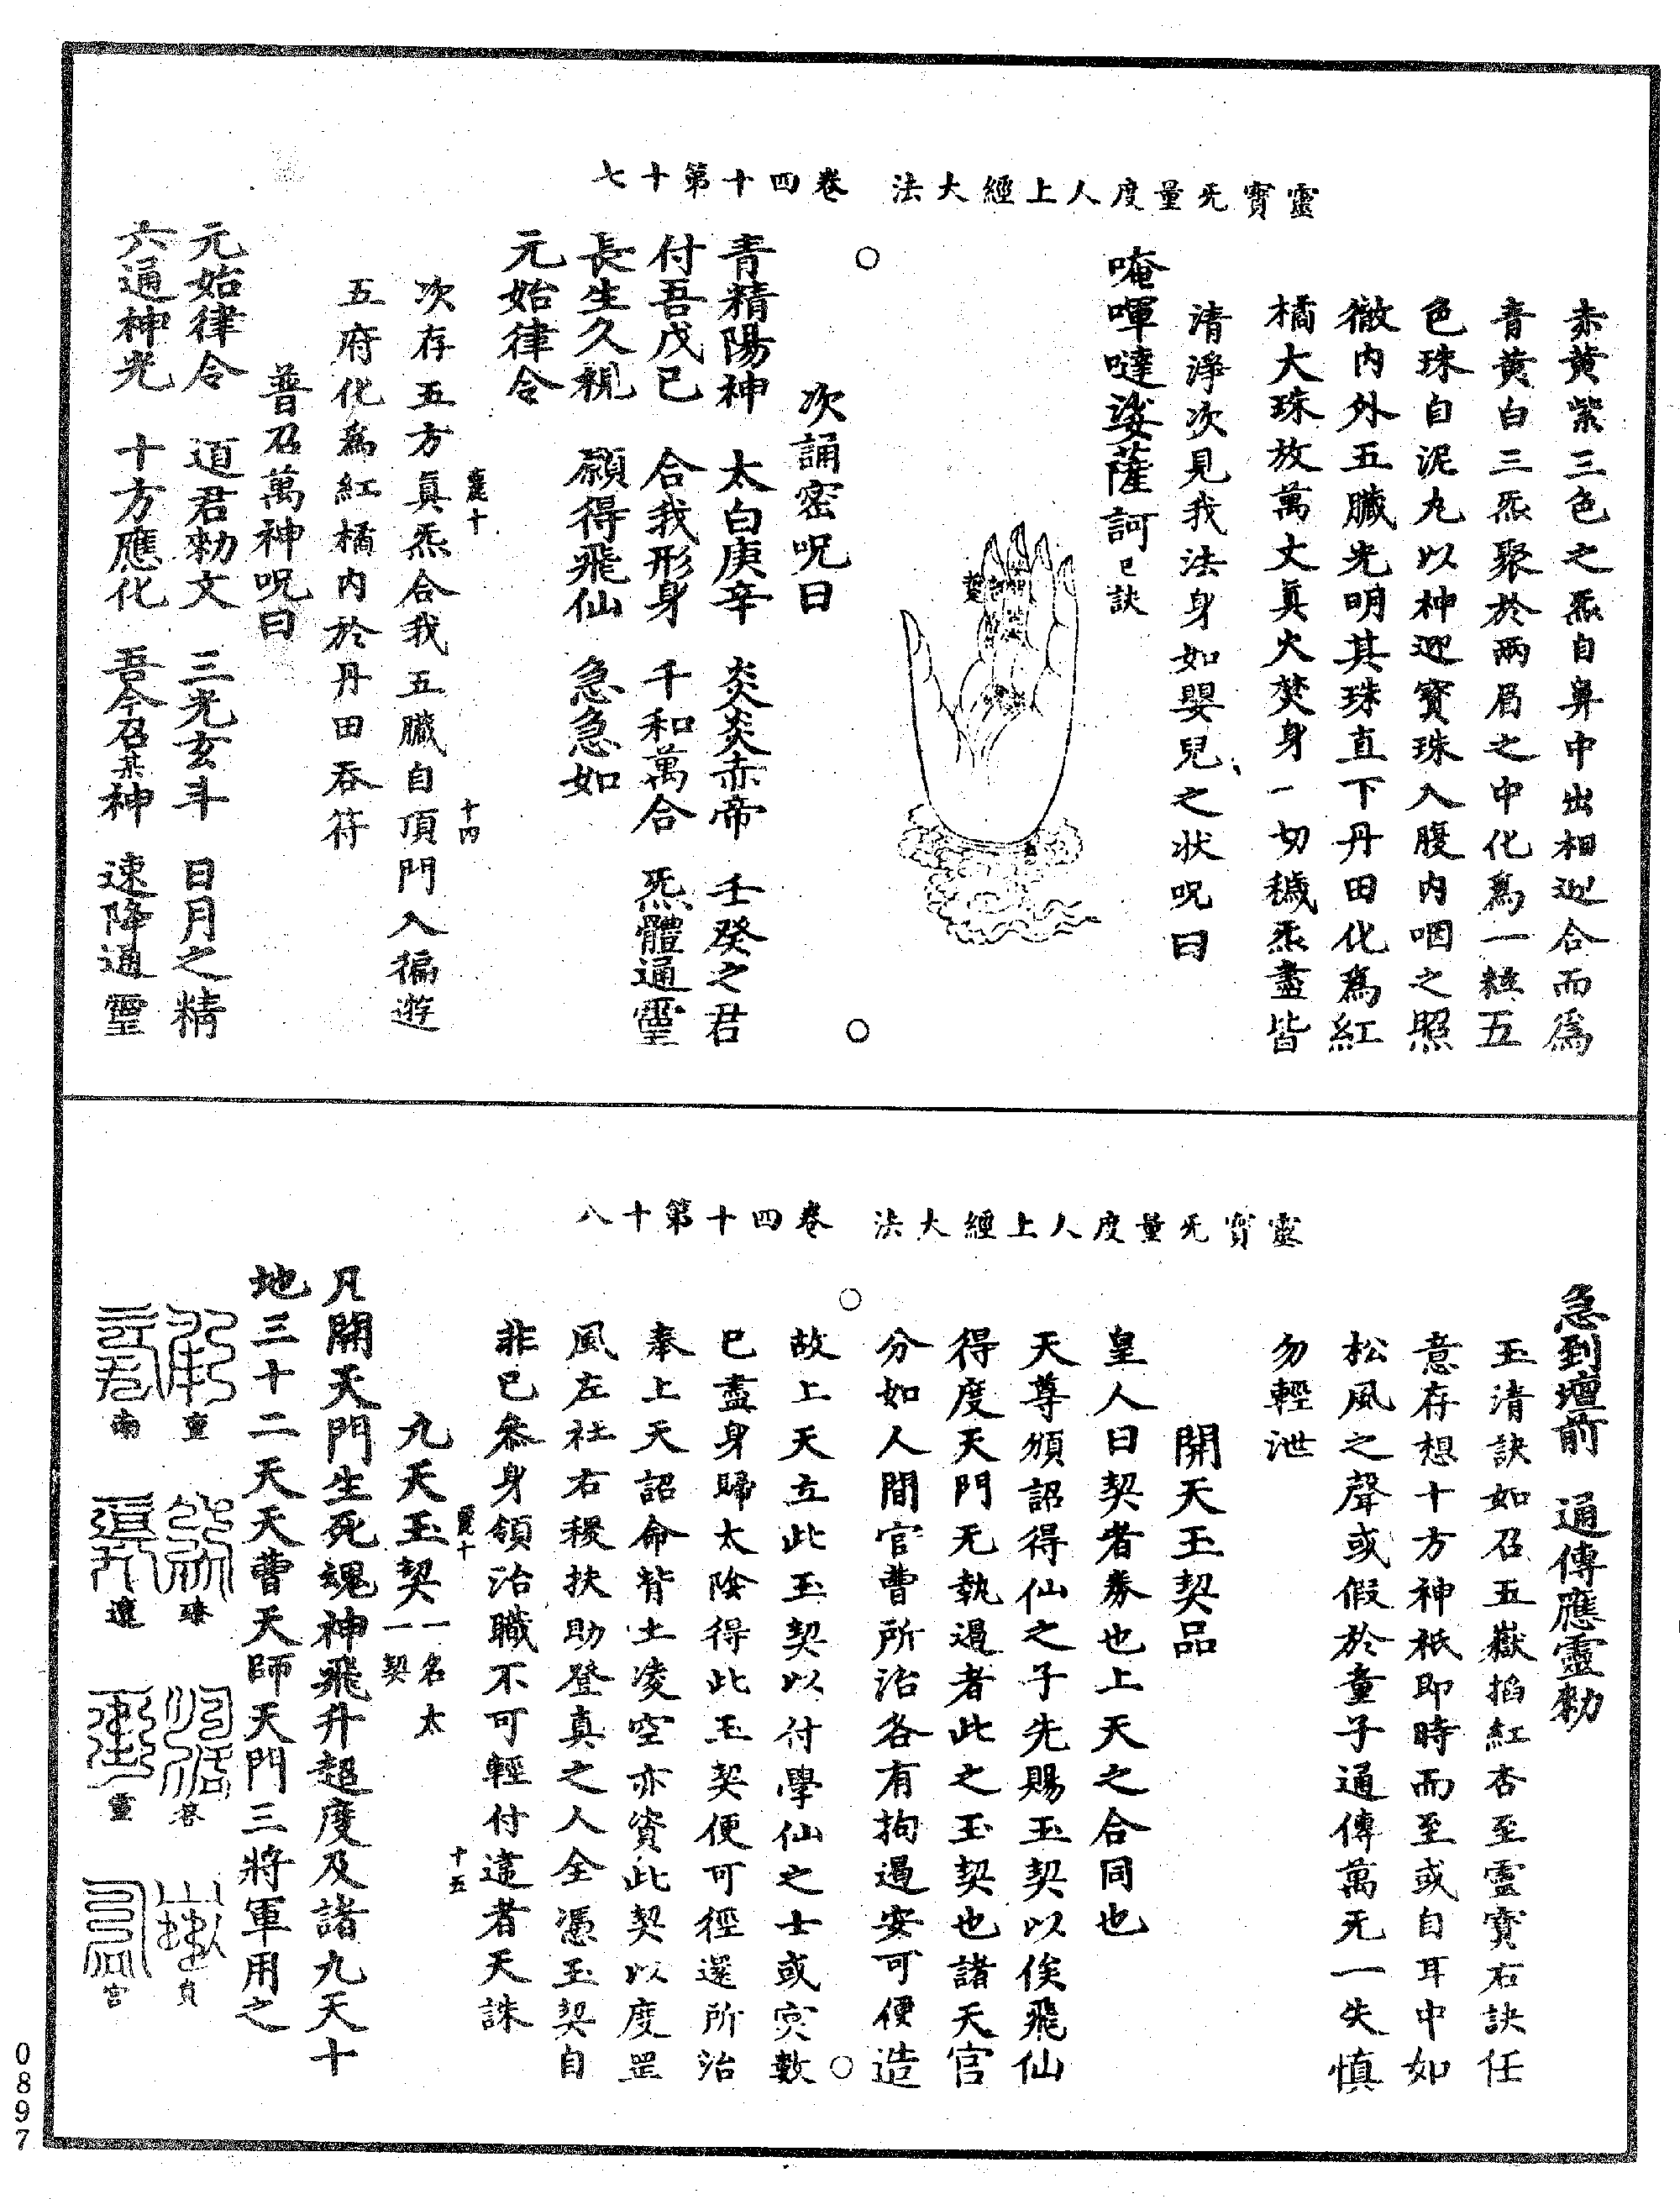 靈寶无量度人上經大法　卷四十第十七
赤黃紫三色之炁自鼻中出相迎合而爲
青黃白三炁聚於兩眉之中化爲一粒五
色珠自泥丸以神迎寶珠入腹內咽之照
徹內外五臟光明其珠直下丹田化爲紅
橘大珠放萬丈真火焚身一切穢炁盡皆
清淨次見我法身如嬰兒之狀呪曰
唵㖉噠娑薩訶巳訣
次誦密呪曰
青精陽神　太白庚辛　炎炎赤帝　壬癸之君
付吾戊己　合我形身　千和萬合　炁體通靈
長生久視　願得飛仙　急急如
元始律令
次存五方真炁合我五臟自頂門入徧遊
五府化爲紅橘內於丹田吞符
普召萬神呪曰
元始律令　道君勑文　三光玄斗　日月之精
六通神光　十方應化　吾今召某神　速降通靈
十四
靈寶无量度人上經大法　卷四十第十八
急到壇前　通傳應靈勑
玉清訣如召五嶽掐紅杏至靈寶右訣任
意存想十方神祇即時而至或自耳中如
松風之聲或假於童子通傳萬无一失慎
勿輕泄
開天玉契品
皇人曰契者券也上天之合同也
天尊頒詔得仙之子先賜玉契以俟飛仙
得度天門无執遏者此之玉契也諸天官
分如人間官曹所治各有拘遏安可便造
故上天立此玉契以付學仙之士或冥數
已盡身歸太陰得此玉契便可徑還所治
奉上天詔命背土凌空亦資此契以度罡
風左社右稷扶助登真之人全憑玉契自
非已叅身領治職不可輕付違者天誅
九天玉契一名太一契
十五
凡開天門生死魂神飛升超度及諸九天十
地三十二天天曹天師天門三將軍用之
0897